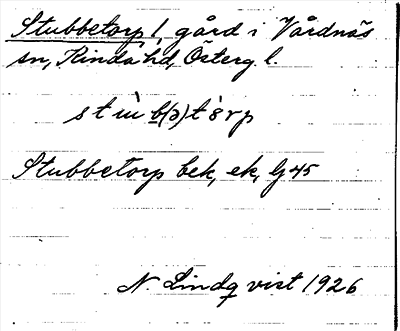 Stubbetorp 1, gård i Vårdnäs
sn, Kinda hd, Österg. l.
st ù b(ə)t ò rp
Stubbetorp bek, ek, Gj 45
N. Lindqvist 1926